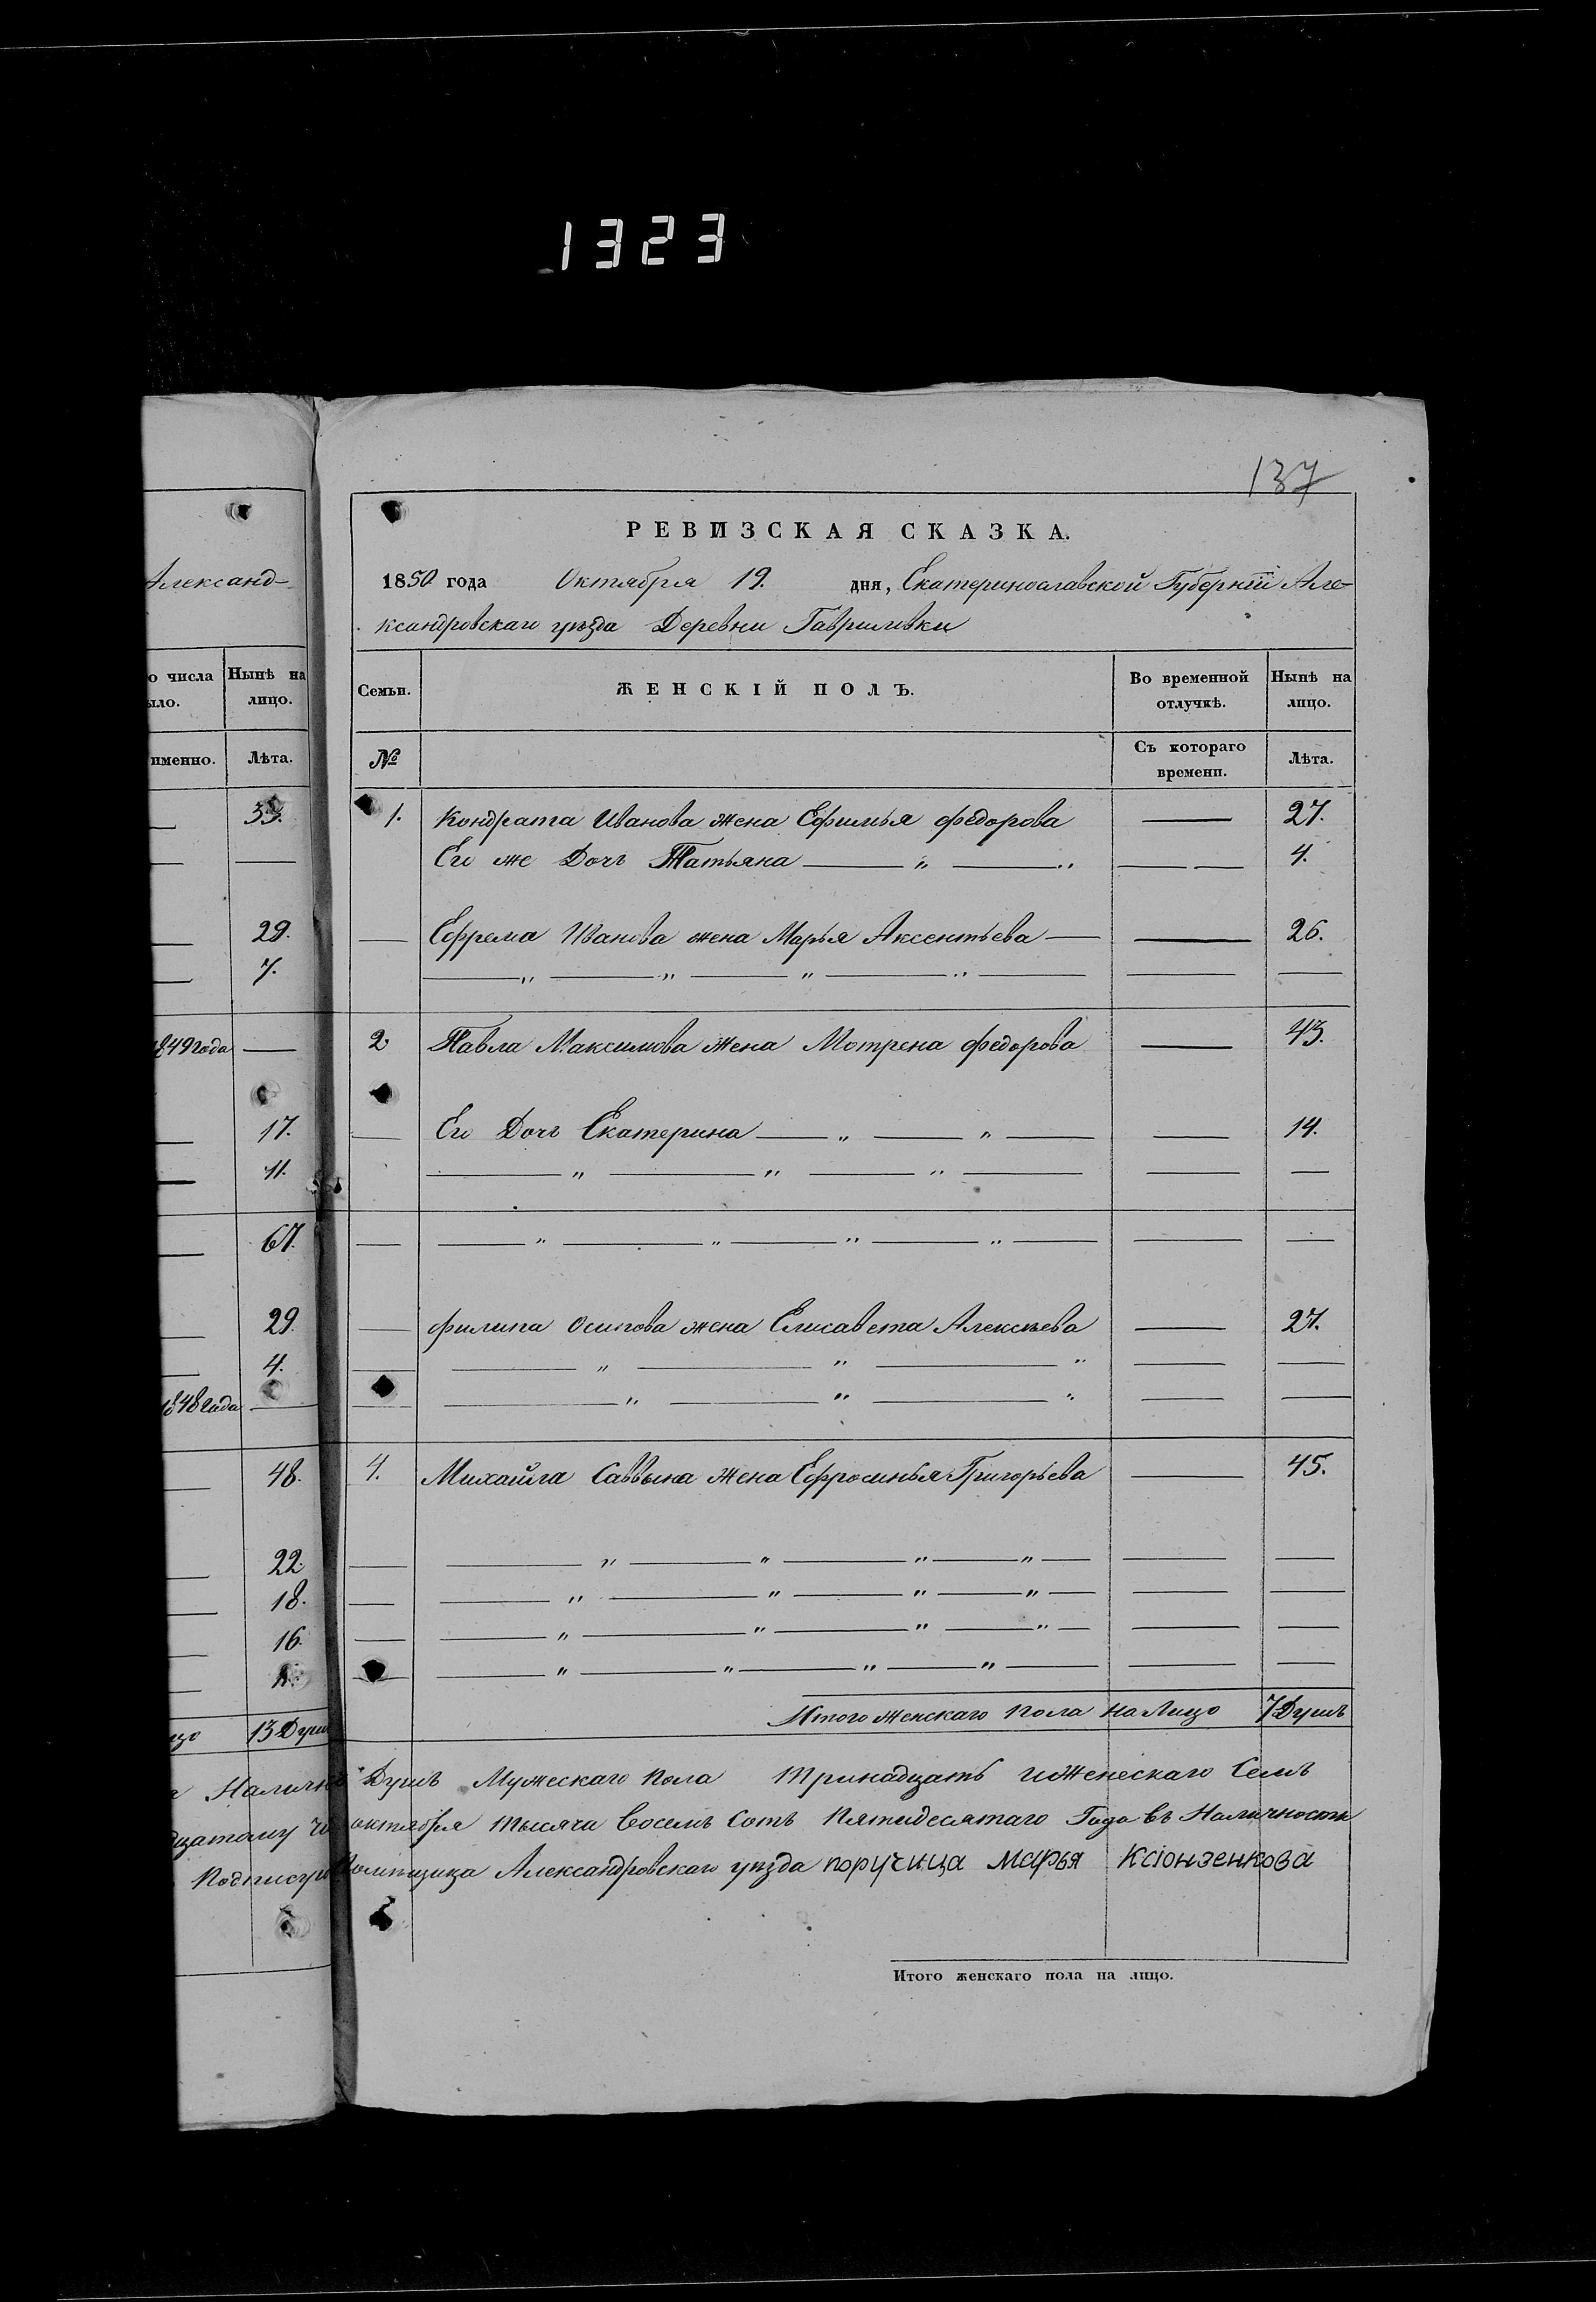 1323
137
РЕВИЗСКАЯ СКАЗКА.
1850 года Октября 19. дня, Екатеринославской Губерніи Але-
ксандровскаго уѣзда Деревни Гавриловки
Семьи. ЖЕНСКІЙ ПОЛЪ. Во временной отлучкѣ. Нынѣ на лицо.
№ Съ котораго времени. Лѣта.
1. Кондрата Иванова жена Ефимья Федорова — 27.
Его же Дочь Татьяна — „ — „ — — 4.
— Ефрема Иванова жена Марья Аксентьева — — 26.
— „ — „ — „ — „ — — —
2. Павла Максимова жена Мотрена Федорова — 43.
— Его Дочь Екатерина — „ — „ — — 14.
— „ — „ — „ — — —
— — „ — „ — „ — „ — — —
— Филипа Осипова жена Елисавета Алексѣева — 27.
— — „ — „ — „ — —
— — „ — „ — „ — —
4. Михайла Саввына жена Ефросинья Григорьева — 45.
— — „ — „ — „ — „ — — —
— — „ — „ — „ — „ — — —
— — „ — „ — „ — „ — — —
— — „ — „ — „ — „ — — —
Итого женскаго пола на Лицо 7 Душъ
Душъ Мужескаго пола Тринадцать и Женескаго Семь
октября тысяча восемь сотъ пятидесятаго Года въ Наличности
Помѣщица Александровскаго уѣзда поручица Марья Ксіонзенкова
Итого женскаго пола на лицо.
Александ-
о числа Нынѣ на
ыло. лицо.
именно. Лѣта.
— 33.
— —
— 29.
— 7.
1849 года —
— 17.
— 11.
— 67.
— 29.
— 4.
1848 года —
— 48.
— 22.
— 18.
— 16.
—
13 Душ
Налич
Подпису